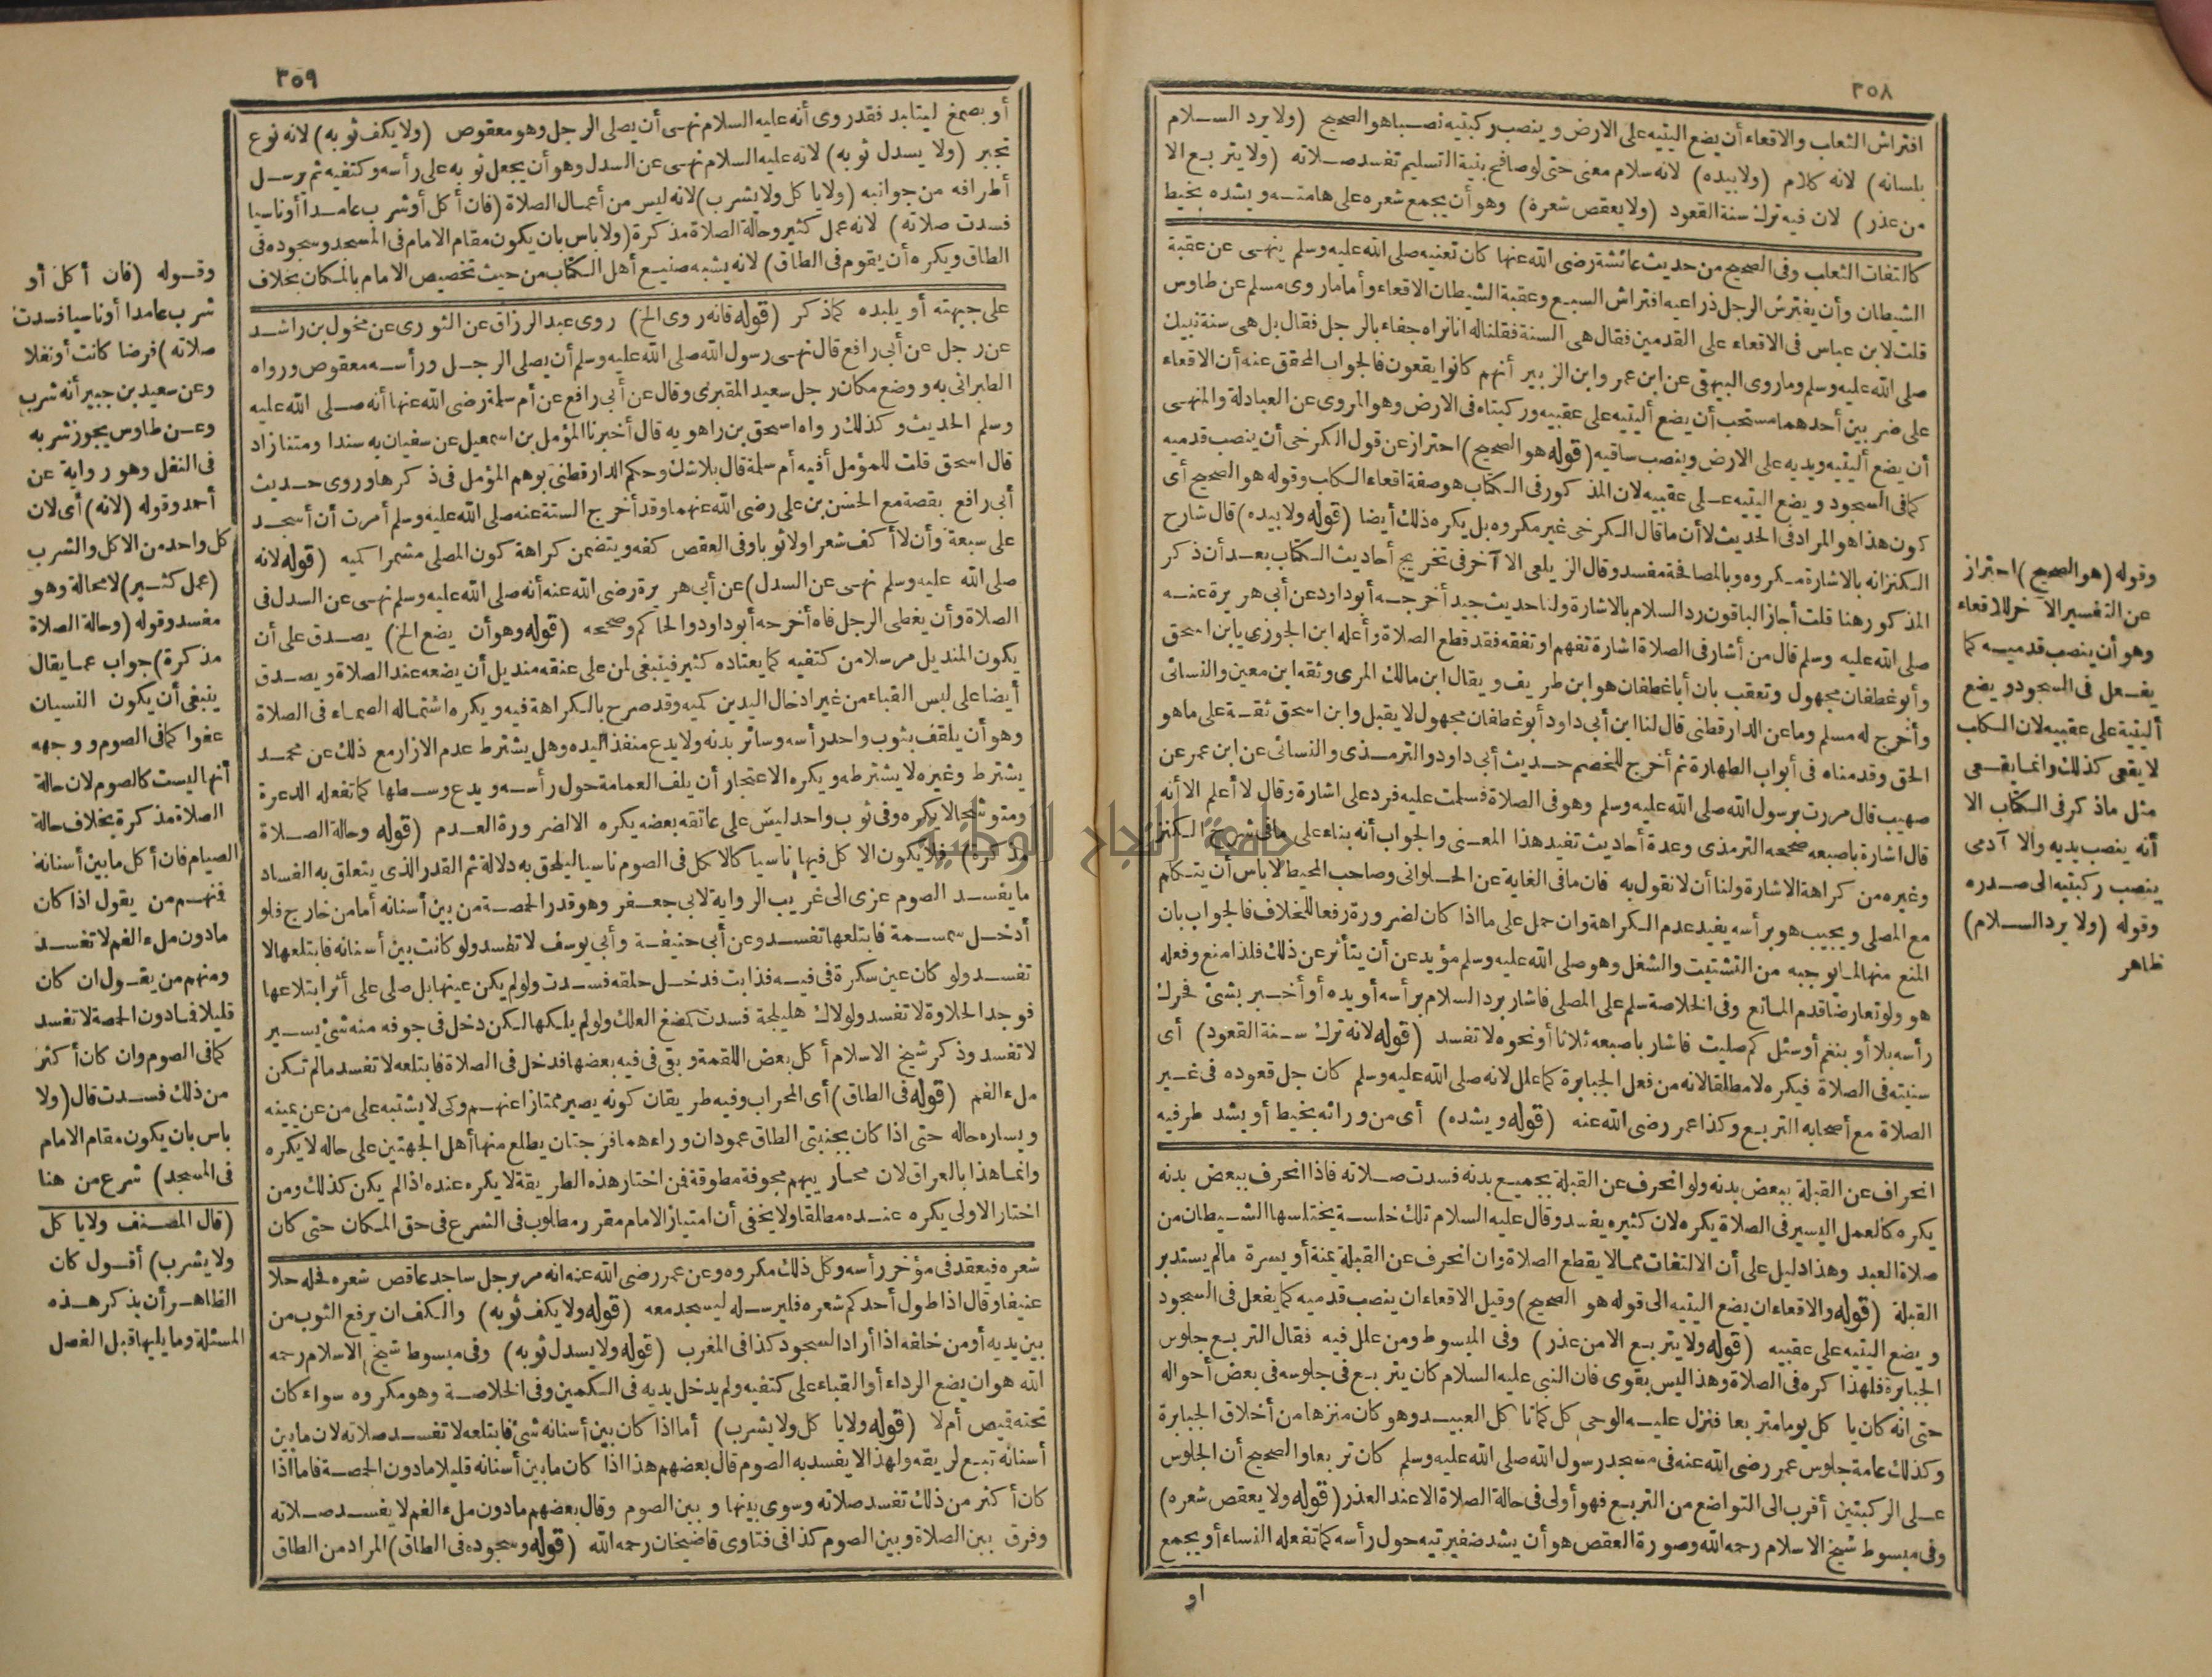 ٣٥٨
افتراش الثعلب والاقعاء أن يضع اليتيه على الارض وينصب ركبتيه نصبا هو الصحيح (ولا يرد السلام
بلسانه) لانه كلام (ولا بيده) لانه سلام معنى حتى لو صافح بنية التسليم تفسد صلاته (ولا يتربع الا
من عذر) لان فيه ترك سنة القعود (ولا يعقص شعره) وهو أن يجمع شعره على هامته ويشده بخيط
كالتفات الثعلب وفى الصحيح من حديث عائشة رضى الله عنها كان تعنيه صلى الله عليه وسلم ينهى عن عقبة
الشيطان وأن يفترش الرجل ذراعيه افتراش السبع وعقبة الشيطان الاقعاء وأما ما روى مسلم عن طاوس
قلت لابن عباس فى الاقعاء على القدمين فقال هى السنة فقلنا له انا نراه جفاء بالرجل فقال بل هى سنة نبيك
صلى الله عليه وسلم وما روى البيهقى عن ابن عمر وابن الزبير أنهم كانوا يقعون فالجواب المحقق عنه أن الاقعاء
على ضربين أحدهما مستحب أن يضع أليتيه على عقبيه وركبتاه فى الارض وهو المروى عن العبادلة والمنهى
أن يضع أليتيه ويديه على الارض وينصب ساقيه (قوله هو الصحيح) احتراز عن قول الكرخى أن ينصب قدميه
كما فى السجود ويضع اليتيه على عقبيه لان المذكور فى الكتاب هو صفة اقعاء الكلب وقوله هو الصحيح أى
كون هذا هو المراد فى الحديث لا أن ما قال الكرخى غير مكروه بل يكره ذلك أيضا (قوله ولا بيده) قال شارح
الكنز انه بالاشارة مكروه وبالمصافحة مفسد وقال الزيلعى الآخر فى تخريج أحاديث الكتاب بعد أن ذكر
المذكور هنا قلت أجاز الباقون رد السلام بالاشارة ولنا حديث جيد أخرجه أبو داود عن أبى هريرة عنه
صلى الله عليه وسلم قال من أشار فى الصلاة اشارة تفهم او تفقه فقد قطع الصلاة وأعله ابن الجوزى بابن اسحق
وأبو غطفان مجهول وتعقب بان أبا غطفان هو ابن طريف ويقال ابن مالك المرى وثقه ابن معين والنسائى
وأخرج له مسلم وما عن الدارقطنى قال لنا ابن أبى داود أبو غطفان مجهول لا يقبل وابن اسحق ثقة على ما هو
الحق وقدمناه فى أبواب الطهارة ثم أخرج للخصم حديث أبى داود والترمذى والنسائى عن ابن عمر عن
صهيب قال مررت برسول الله صلى الله عليه وسلم وهو فى الصلاة فسلمت عليه فرد على اشارة وقال لا أعلم الا أنه
قال اشارة باصبعه صححه الترمذى وعدة أحاديث تفيد هذا المعنى والجواب أنه بناء على ما فى شرح الكنز
وغيره من كراهة الاشارة ولنا أن لا نقول به فان ما فى الغاية عن الحلوانى وصاحب المحيط لا باس أن يتكلم
مع المصلى ويجيب هو برأسه يفيد عدم الكراهة وان حمل على ما اذا كان لضرورة رفعا للخلاف فالجواب بان
المنع منها لما يوجبه من التشتيت والشغل وهو صلى الله عليه وسلم مؤيد عن أن يتأثر عن ذلك فلذا منع وفعله
هو ولو تعارضا قدم المانع وفى الخلاصة سلم على المصلى فاشار برد السلام برأسه أو يده أو أخبر بشئ فحرك
رأسه بلا أو بنعم أو سئل كم صليت فاشار باصبعه ثلاثا أو نحوه لا تفسد (قوله لانه ترك سنة القعود) أى
سنيته فى الصلاة فيكره لا مطلقا لانه من فعل الجبابرة كما علل لانه صلى الله عليه وسلم كان جل قعوده فى غير
الصلاة مع أصحابه التربع وكذا عمر رضى الله عنه (قوله ويشده) أى من ورائه بخيط أو يشد طرفيه
انحراف عن القبلة ببعض بدنه ولو انحرف عن القبلة بجميع بدنه فسدت صلاته فاذا انحرف ببعض بدنه
يكره كالعمل اليسير فى الصلاة يكره لان كثيره يفسد وقال عليه السلام تلك خلسة يختلسها الشيطان من
صلاة العبد وهذا دليل على أن الالتفات مما لا يقطع الصلاة وان انحرف عن القبلة يمنة أو يسرة ما لم يستدبر
القبلة (قوله والاقعاء ان يضع اليتيه الى قوله هو الصحيح) وقيل الاقعاء ان ينصب قدميه كما يفعل فى السجود
ويضع اليتيه على عقبيه (قوله ولا يتربع الا من عذر) وفى المبسوط ومن علل فيه فقال التربع جلوس
الجبابرة فلهذا كره فى الصلاة وهذا ليس بقوى فان النبى عليه السلام كان يتربع فى جلوسه فى بعض أحواله
حتى انه كان يا كل يوما متربعا فنزل عليه الوحى كل كما تا كل العبيد وهو كان منزها من أخلاق الجبابرة
وكذلك عامة جلوس عمر رضى الله عنه فى مسجد رسول الله صلى الله عليه وسلم كان تربعا والصحيح أن الجلوس
على الركبتين أقرب الى التواضع من التربع فهو أولى فى حالة الصلاة الا عند العذر (قوله ولا يعقص شعره)
وفى مبسوط شيخ الاسلام رحمه الله وصورة العقص هو أن يشد ضفيرتيه حول رأسه كما تفعله النساء أو يجمع
او
وقوله (هو الصحيح) احتراز
عن التفسير الآخر للاقعاء
وهو أن ينصب قدميه كما
يفعل فى السجود ويضع
أليتيه على عقبيه لان الكلب
لا يقعى كذلك وانما يقعى
مثل ما ذكر فى الكتاب الا
أنه ينصب يديه والآدمى
ينصب ركبتيه الى صدره
وقوله (ولا يرد السلام)
ظاهر
٣٥٩
أو بصمغ ليتلبد فقد روى أنه عليه السلام نهى أن يصلى الرجل وهو معقوص (ولا يكف ثوبه) لانه نوع
تجبر (ولا يسدل ثوبه) لانه عليه السلام نهى عن السدل وهو أن يجعل ثوبه على رأسه وكتفيه ثم يرسل
أطرافه من جوانبه (ولا يا كل ولا يشرب) لانه ليس من أعمال الصلاة (فان أكل أو شرب عامدا أو ناسيا
فسدت صلاته) لانه عمل كثير وحالة الصلاة مذكرة (ولا باس بان يكون مقام الامام فى المسجد وسجوده فى
الطاق ويكره أن يقوم فى الطاق) لانه يشبه صنيع أهل الكتاب من حيث تخصيص الامام بالمكان بخلاف
على جبهته أو يلبده كما ذكر (قوله فانه روى الخ) روى عبد الرزاق عن الثورى عن مخول بن راشد
عن رجل عن أبى رافع قال نهى رسول الله صلى الله عليه وسلم أن يصلى الرجل ورأسه معقوص ورواه
الطبرانى به ووضع مكان رجل سعيد المقبرى وقال عن أبى رافع عن أم سلمة رضى الله عنها أنه صلى الله عليه
وسلم الحديث وكذلك رواه اسحق بن راهويه قال أخبرنا المؤمل بن اسمعيل عن سفيان به سندا ومتنا زاد
قال اسحق قلت للمؤمل أفيه أم سلمة قال بلا شك وحكم الدارقطنى بوهم المؤمل فى ذكرها وروى حديث
أبى رافع بقصة مع الحسن بن على رضى الله عنهما وقد أخرج الستة عنه صلى الله عليه وسلم أمرت أن أسجد
على سبعة وأن لا أكف شعرا ولا ثوبا وفى العقص كفه ويتضمن كراهة كون المصلى مشمرا كميه (قوله لانه
صلى الله عليه وسلم نهى عن السدل) عن أبى هريرة رضى الله عنه أنه صلى الله عليه وسلم نهى عن السدل فى
الصلاة وأن يغطى الرجل فاه أخرجه أبو داود والحاكم وصححه (قوله وهو أن يضع الخ) يصدق على أن
يكون المنديل مرسلا من كتفيه كما يعتاده كثير فينبغى لمن على عنقه منديل أن يضعه عند الصلاة ويصدق
أيضا على لبس القباء من غير ادخال اليدين كميه وقد صرح بالكراهة فيه ويكره اشتماله الصماء فى الصلاة
وهو أن يلتف بثوب واحد رأسه وسائر بدنه ولا يدع منفذا ليده وهل يشترط عدم الازار مع ذلك عن محمد
يشترط وغيره لا يشترطه ويكره الاعتجار أن يلف العمامة حول رأسه ويدع وسطها كما تفعله الدعرة
ومتوشحا لا يكره وفى ثوب واحد ليس على عاتقه بعضه يكره الا لضرورة العدم (قوله وحالة الصلاة
مذكرة) فلا يكون الاكل فيها ناسيا كالاكل فى الصوم ناسيا ليلحق به دلالة ثم القدر الذى يتعلق به الفساد
ما يفسد الصوم عزى الى غريب الرواية لابى جعفر وهو قدر الحمصة من بين أسنانه أما من خارج فلو
أدخل سمسمة فابتلعها تفسد وعن أبى حنيفة وأبى يوسف لا تفسد ولو كانت بين أسنانه فابتلعها لا
تفسد ولو كان عين سكرة فى فيه فذابت فدخل حلقه فسدت ولو لم يكن عينها بل صلى على أثر ابتلاعها
فوجد الحلاوة لا تفسد ولو لاك هليلجة فسدت كمضغ العلك ولو لم يلكها لكن دخل فى جوفه منه شئ يسير
لا تفسد وذكر شيخ الاسلام أكل بعض اللقمة وبقى فى فيه بعضها فدخل فى الصلاة فابتلعه لا تفسد ما لم تكن
ملء الفم (قوله فى الطاق) أى المحراب وفيه طريقان كونه يصير ممتازا عنهم وكى لا يشتبه على من عن يمينه
ويساره حاله حتى اذا كان بجنبتى الطاق عمودان وراءهما فرجتان يطلع منها أهل الجهتين على حاله لا يكره
وانما هذا بالعراق لان محاريبهم مجوفة مطوقة فمن اختار هذه الطريقة لا يكره عنده اذا لم يكن كذلك ومن
اختار الاولى يكره عنده مطلقا ولا يخفى أن امتياز الامام مقرر مطلوب فى الشرع فى حق المكان حتى كان
شعره فيعقد فى مؤخر رأسه وكل ذلك مكروه وعن عمر رضى الله عنه انه مر برجل ساجد عاقص شعره فحله حلا
عنيفا وقال اذا طول أحدكم شعره فليرسله ليسجد معه (قوله ولا يكف ثوبه) والكف ان يرفع الثوب من
بين يديه أو من خلفه اذا أراد السجود كذا فى المغرب (قوله ولا يسدل ثوبه) وفى مبسوط شيخ الاسلام رحمه
الله هو ان يضع الرداء أو القباء على كتفيه ولم يدخل يديه فى الكمين وفى الخلاصة وهو مكروه سواء كان
تحته قميص أم لا (قوله ولا يا كل ولا يشرب) أما اذا كان بين أسنانه شئ فابتلعه لا تفسد صلاته لان ما بين
أسنانه تبع لريقه ولهذا لا يفسد به الصوم قال بعضهم هذا اذا كان ما بين أسنانه قليلا ما دون الحمصة فاما اذا
كان أكثر من ذلك تفسد صلاته وسوى بينها وبين الصوم وقال بعضهم ما دون ملء الفم لا يفسد صلاته
وفرق بين الصلاة وبين الصوم كذا فى فتاوى قاضيخان رحمه الله (قوله وسجوده فى الطاق) المراد من الطاق
وقوله (فان أكل أو
شرب عامدا أو ناسيا فسدت
صلاته) فرضا كانت أو نفلا
وعن سعيد بن جبير أنه شرب
وعن طاوس يجوز شربه
فى النفل وهو رواية عن
أحمد وقوله (لانه) أى لان
كل واحد من الاكل والشرب
(عمل كثير) لا محالة وهو
مفسد وقوله (وحالة الصلاة
مذكرة) جواب عما يقال
ينبغى أن يكون النسيان
عفوا كما فى الصوم ووجهه
أنها ليست كالصوم لان حالة
الصلاة مذكرة بخلاف حالة
الصيام فان أكل ما بين أسنانه
فمنهم من يقول اذا كان
ما دون ملء الفم لا تفسد
ومنهم من يقول ان كان
قليلا فما دون الحمصة لا تفسد
كما فى الصوم وان كان أكثر
من ذلك فسدت قال (ولا
باس بان يكون مقام الامام
فى المسجد) شرع من هنا
(قال المصنف ولا يا كل
ولا يشرب) أقول كان
الظاهر أن يذكر هذه
المسئلة وما يليها قبل الفصل
جامعة النجاح الوطنية